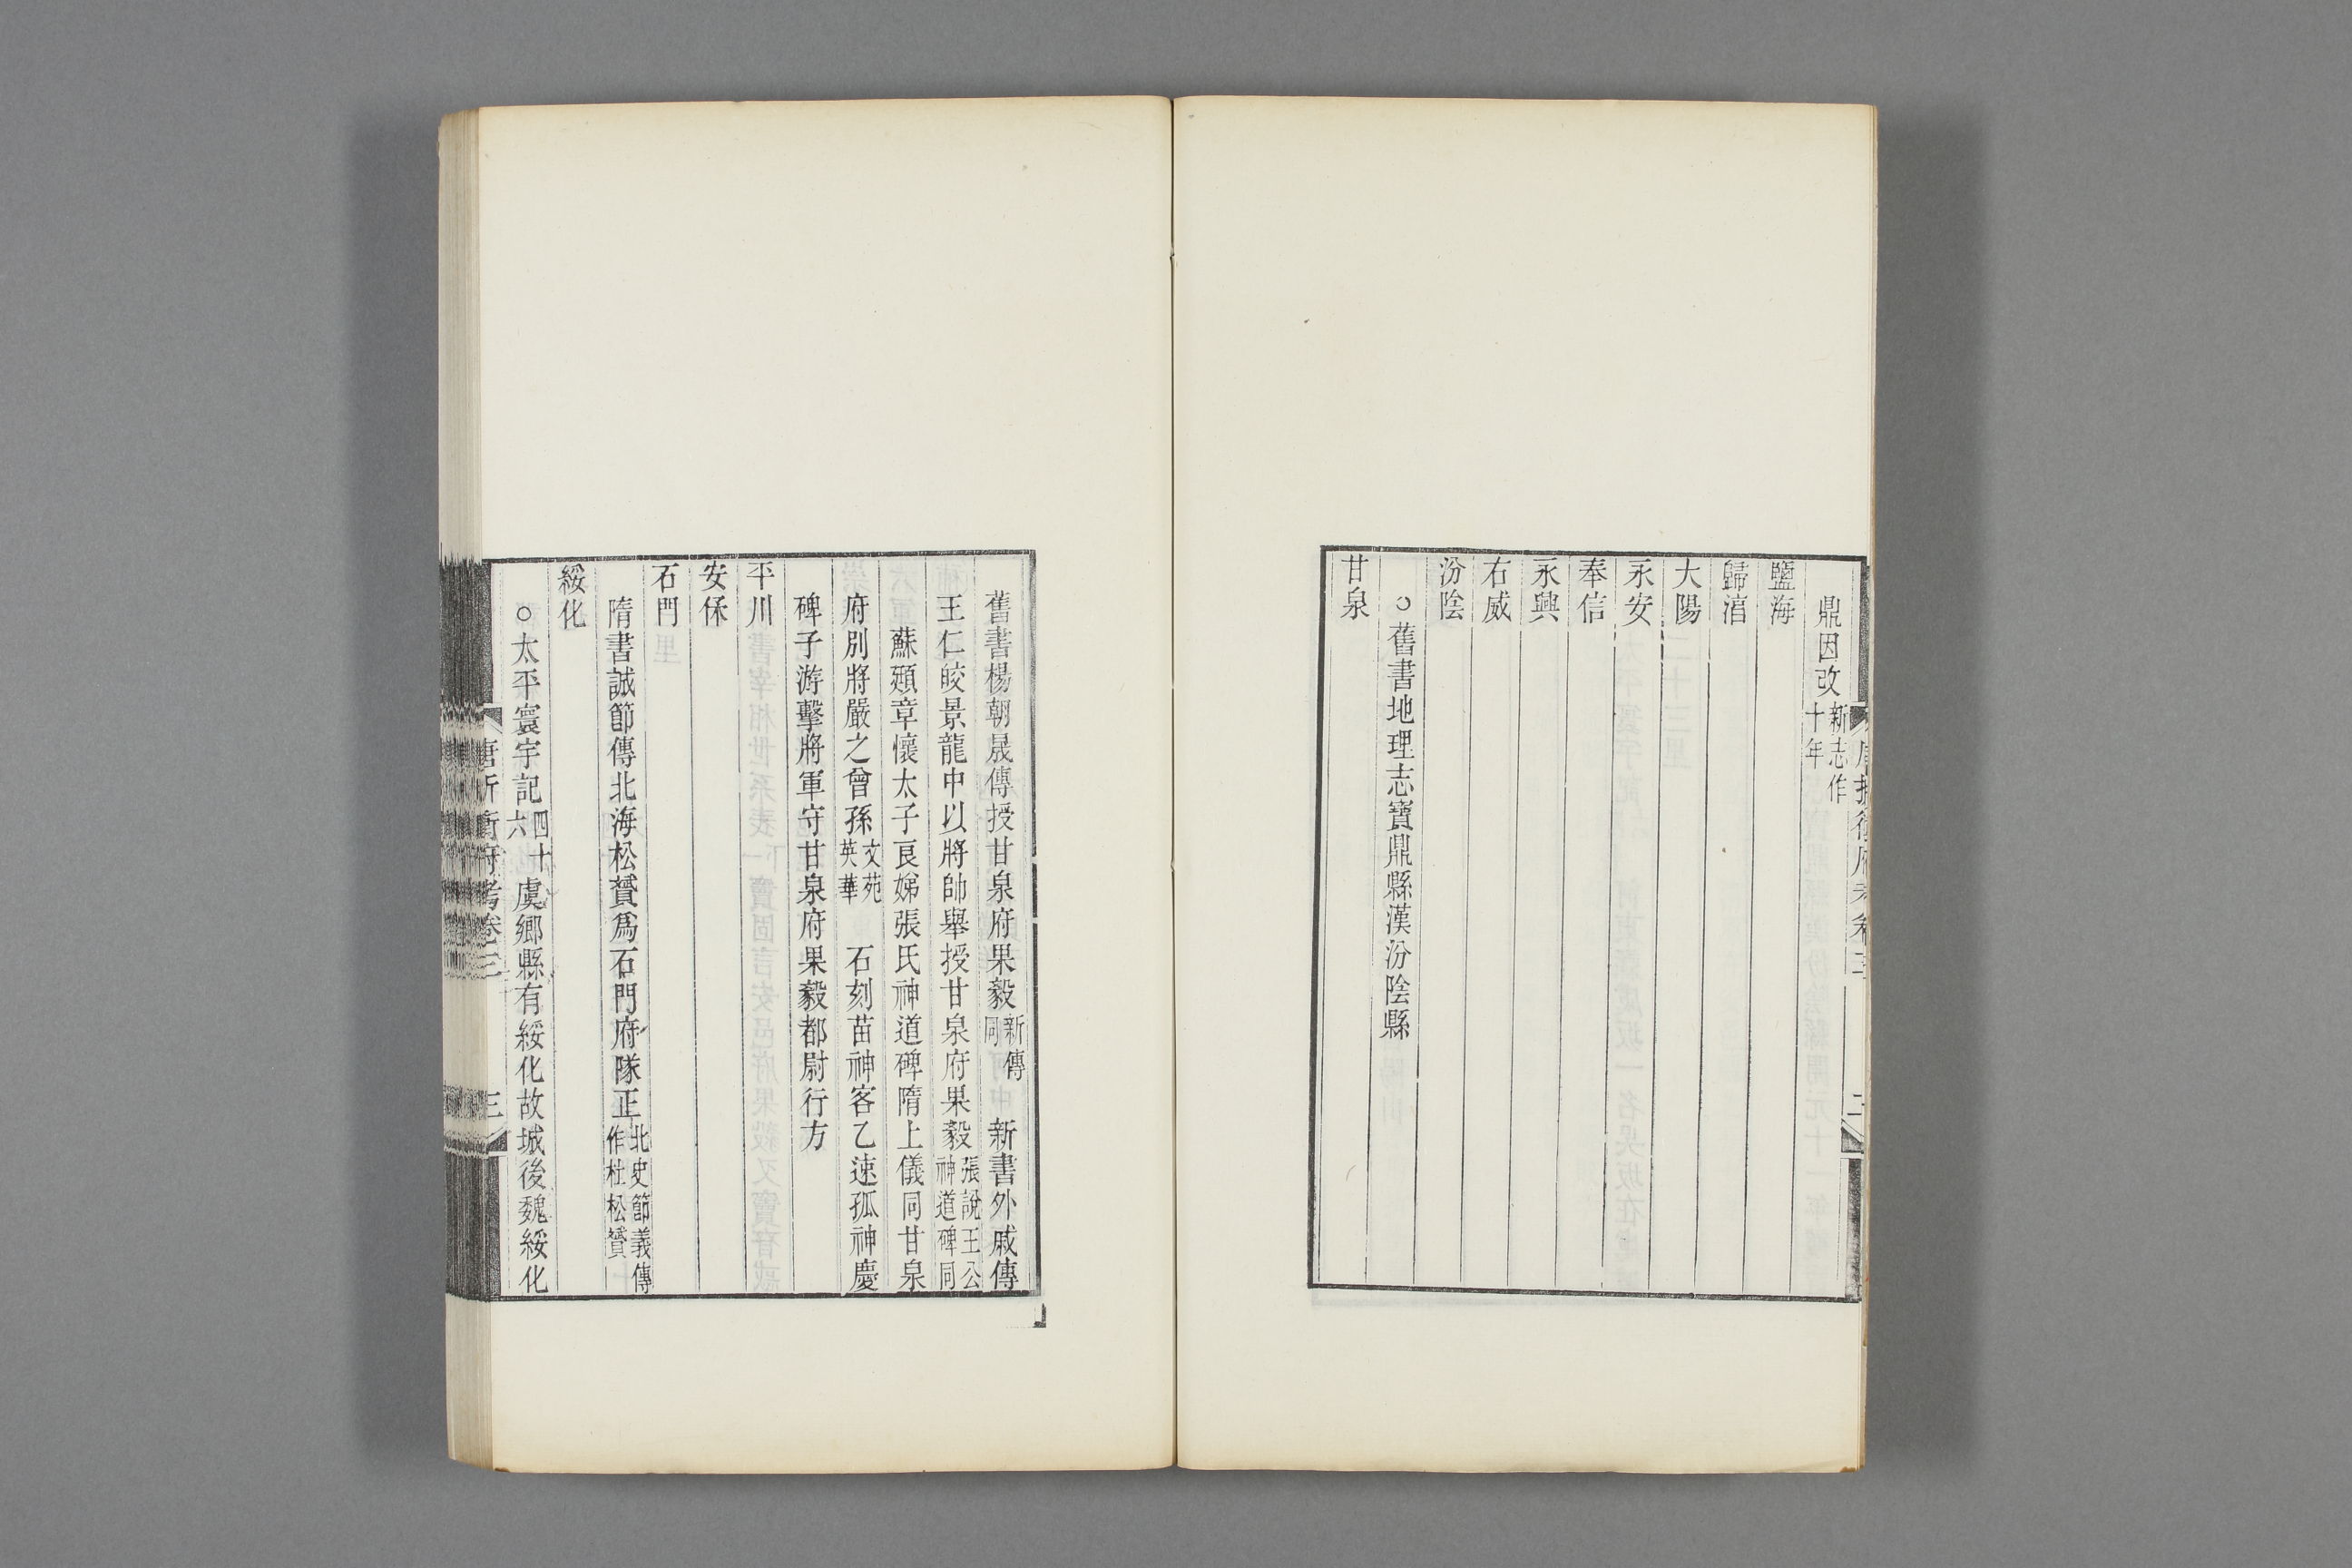 鼎因改新志作十年
鹽海
歸淯
大陽
永安
奉信
永興
右威
汾陰
○舊書地理志寶鼎縣漢汾陰縣
甘泉
舊書楊朝晟傳授甘泉府果毅新傳同 新書外戚傳
王仁皎景龍中以將帥舉授甘泉府果毅張說王公神道碑同
蘇頲章懷太子良娣張氏神道碑隋上儀同甘泉
府別將嚴之曾孫文苑英華 石刻苗神客乙速孤神慶
碑子游擊將軍守甘泉府果毅都尉行方
平川
安保
石門
隋書誠節傳北海松贇爲石門府隊正北史節義傳作杜松贇
綏化
○太平寰宇記四十六虞鄉縣有綏化故城後魏綏化
唐折衝府考卷三
三